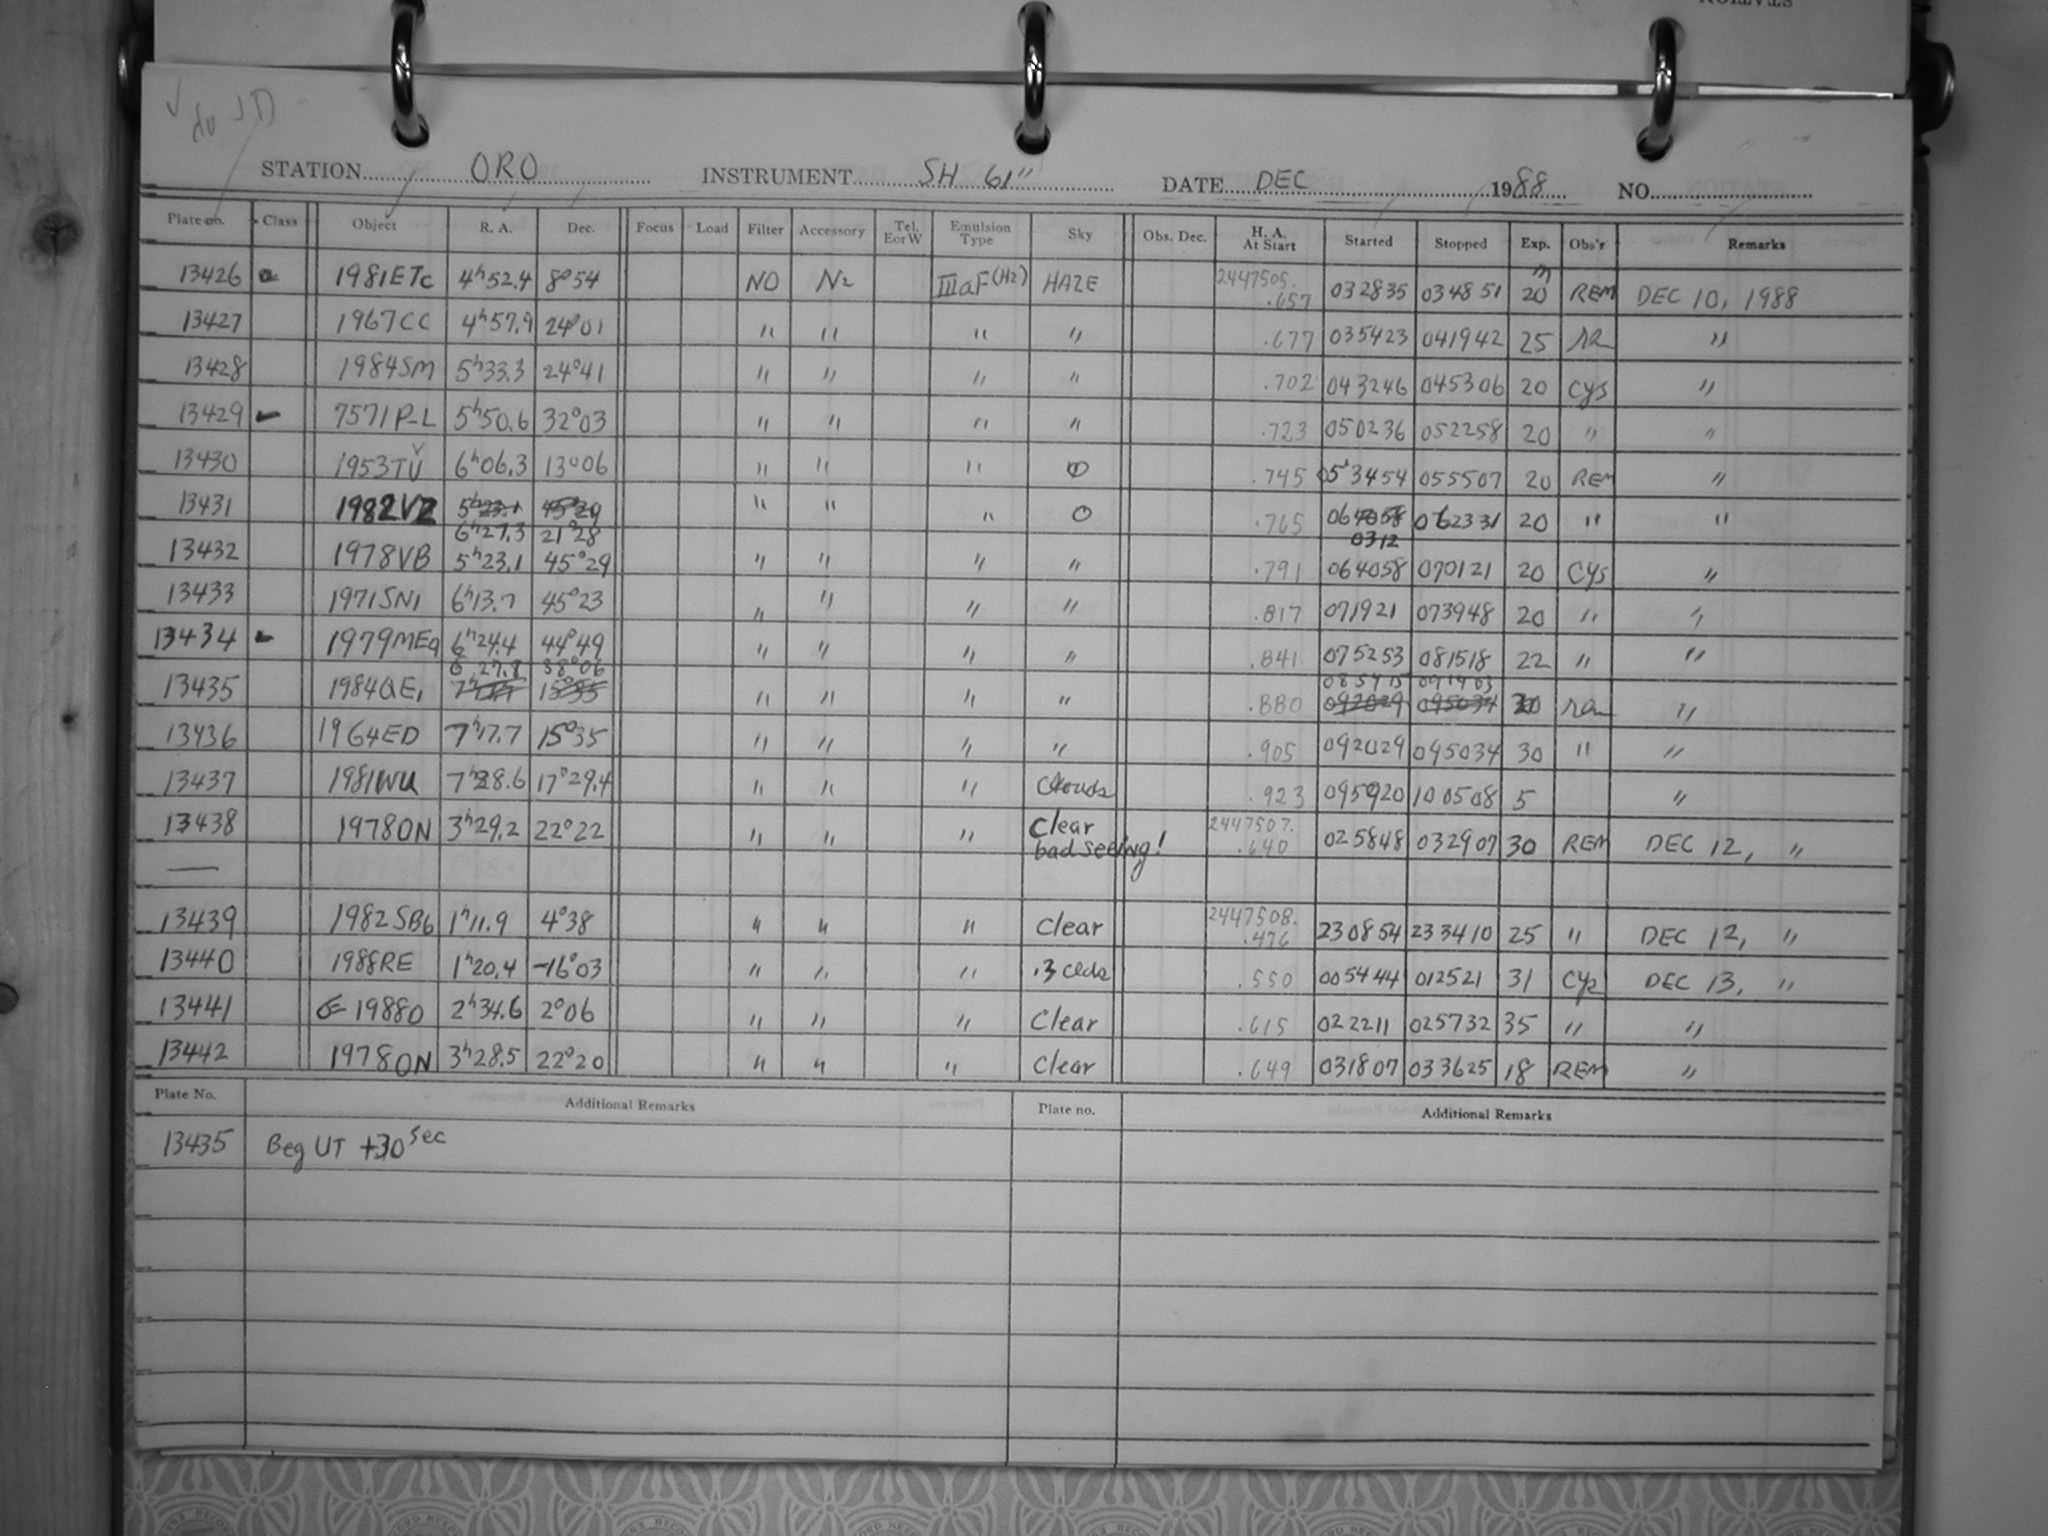 STATION ORO INSTRUMENT SH 61" DATE DEC 1988 NO.
Plate no. Class Object R. A. Dec. Focus Load Filter Accessory Tel. E or W Emulsion Type Sky Obs. Dec. H. A. At Start Started Stopped Exp. Obs'r Remarks
13426 1981ETc 4h52.4 8°54 NO N2 IIIaF(H2) HAZE 2447505. .657 032835 034851 20m REM DEC 10, 1988
13427 1967CC 4h57.9 24°01 " " " " .677 035423 041942 25 ra "
13428 1984SM 5h33.3 24°41 " " " " .702 043246 045306 20 cys "
13429 7571P-L 5h50.6 32°03 " " " " .723 050236 052258 20 " "
13430 1953TU 6h06.3 13°06 " " " .745 053454 055507 20 REM "
13431 1982VZ 5h23.1 45°29 " " " O .765 064058 062331 20 " "
6h27.3 21°28 0312
13432 1978VB 5h23.1 45°29 " " " " .791 064058 070121 20 Cys "
13433 1971SN1 6h13.7 45°23 " " " " .817 071921 073948 20 " "
13434 1979MEq 6h24.4 44°49 " " " " .841 075253 081518 22 " "
6 27.8 38°06 085415 091903
13435 1984QE1 15°35 " " " " .880 092029 095034 ra "
13436 1964ED 7h17.7 15°35 " " " " .905 092029 095034 30 " "
13437 1981WU 7h28.6 17°29.4 " " " Clouds .923 095920 100508 5 "
13438 1978ON 3h29.2 22°22 " " " Clear bad seeing! 2447507. .640 025848 032907 30 REM DEC 12, "
13439 1982SB6 1h11.9 4°38 " " " Clear 2447508. .476 230854 233410 25 " DEC 12, "
13440 1988RE 1h20.4 -16°03 " " " .3 clds .550 005444 012521 31 Cys DEC 13, "
13441 1988O 2h34.6 2°06 " " " Clear .615 022211 025732 35 " "
13442 1978ON 3h28.5 22°20 " " " Clear .649 031807 033625 18 REM "
Plate No. Additional Remarks Plate no. Additional Remarks
13435 Beg UT +30sec